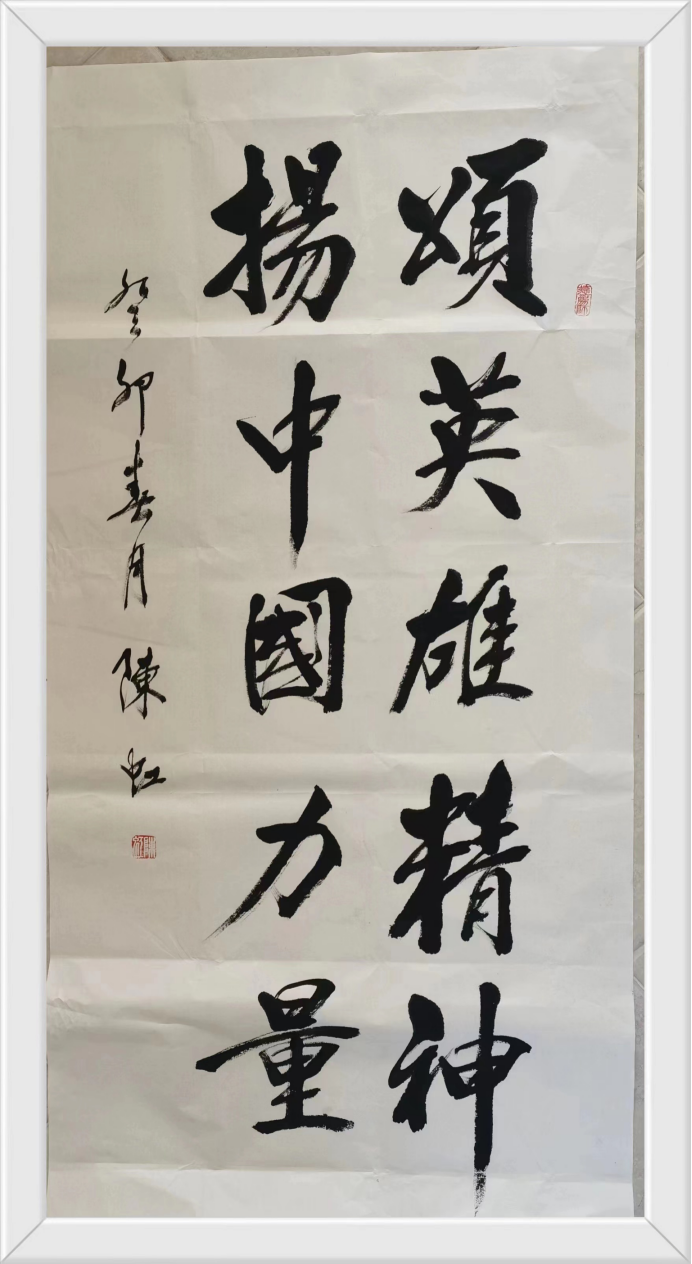 頌英雄精神
揚中國力量
癸卯春月陳虹